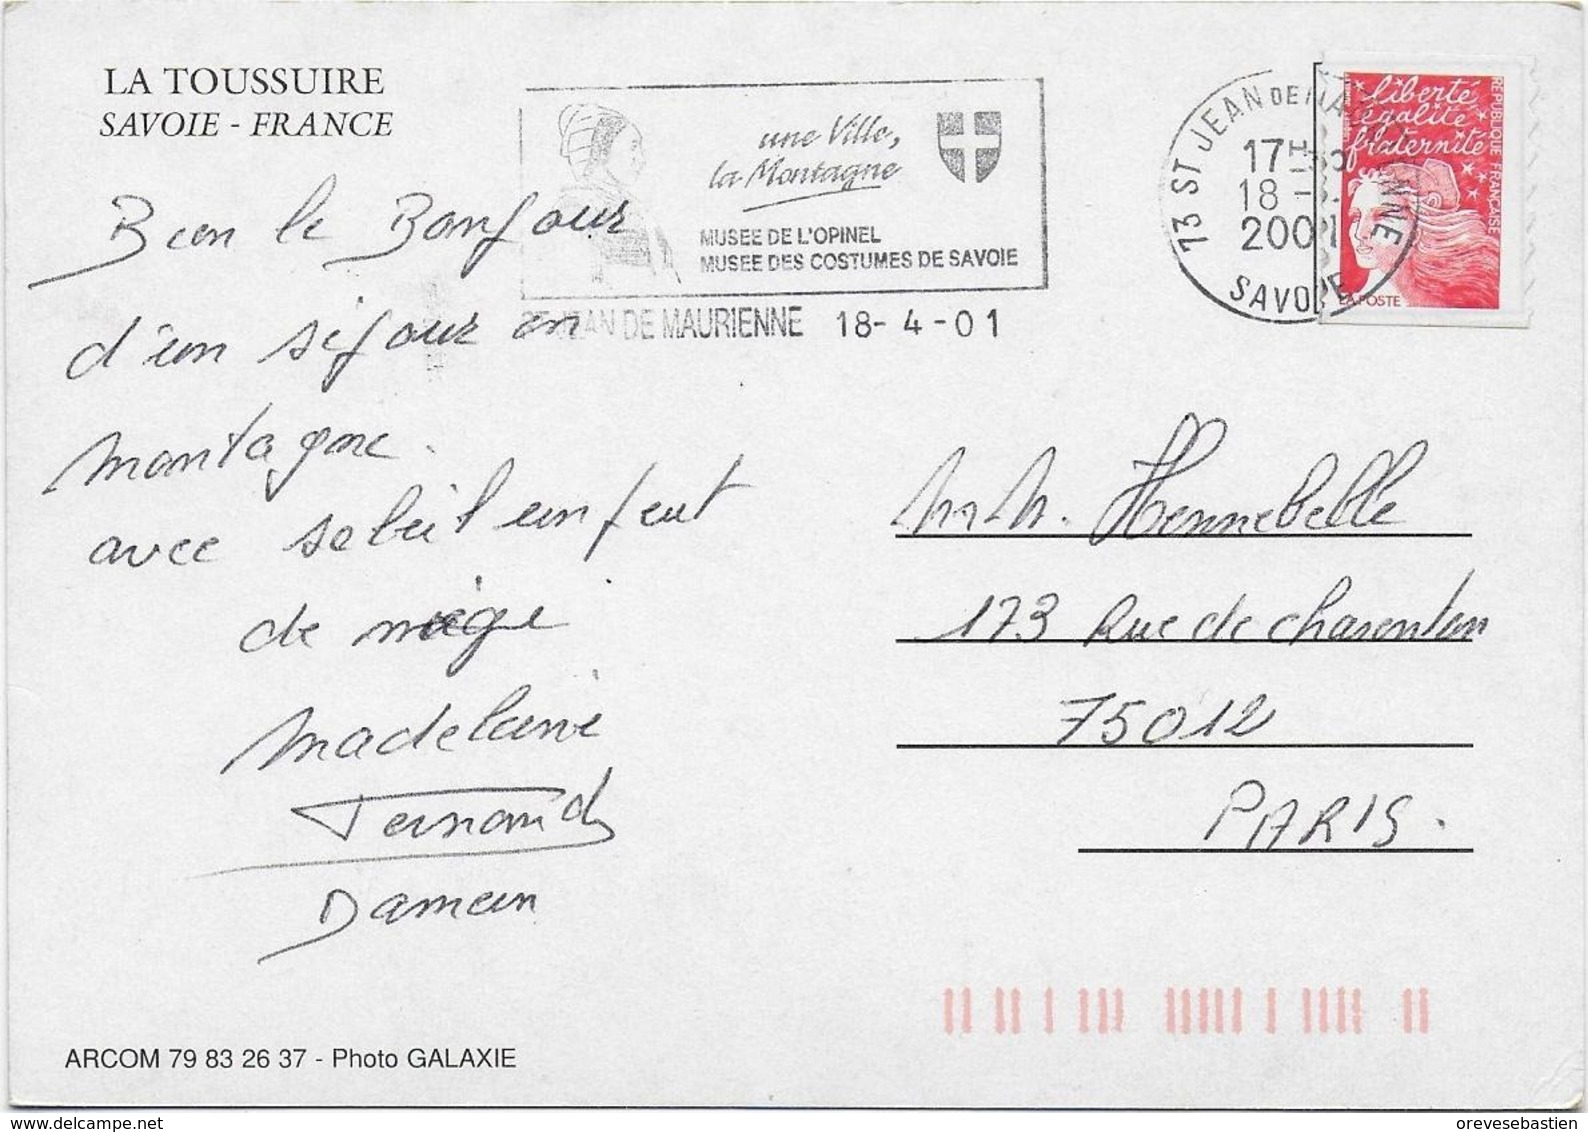 LA TOUSSUIRE
SAVOIE - FRANCE
une Ville,
la Montagne
MUSEE DE L'OPINEL
MUSEE DES COSTUMES DE SAVOIE
JEAN DE MAURIENNE 18-4-01
73 ST JEAN DE MAURIENNE
17H
18
2001
SAVOIE
liberté
égalité
fraternité
REPUBLIQUE FRANÇAISE
LA POSTE
Bien le Bonjour
d'un séjour en
montagne.
avec soleil un peut
de neige
Madelaine
Fernand
Damien
M. M. Hennebelle
173 Rue de charenton
75012
PARIS.
ARCOM 79 83 26 37 - Photo GALAXIE
www.delcampe.net
orevesebastien